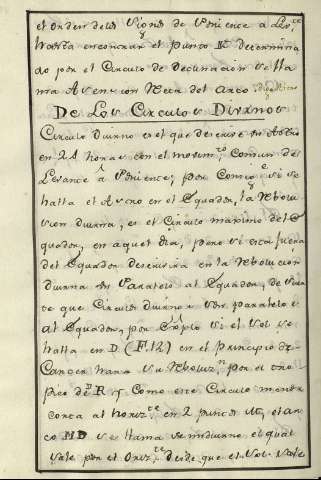 el orden de los Signos de Poniente a Lev.te
hasta encontrar el punto K determina
do por el Circulo de Declinacion se lla
ma Ascension Recta del arco
De Los Circulos Diurnos
Circulo Diurno es el que descrive un Astro
en 24 horas con el movim.to Comun de
Levante â Poniente; pon Comigo si se
halla el Astro en el Equador, la Revolu
cion diurna, es el Circulo maximo del E
quador, en aquel dia, pero si esta fuera
del Equador descrivira en la Revolucion
diurna un Paralelo al Equador, de suer
te que Circulos diurnos son paralelos
al Equador, por Exp.lo si el Sol se
halla en D (F.12) en el Principio de
Cancer hara su Revoluz.n por el tro
pico de D R y Como este Circulo menor
corta al horiz.te en 2 puntos el ar
co MD se llama semidiurno el qual
sale por el Oriz.te desde que el Sol sale